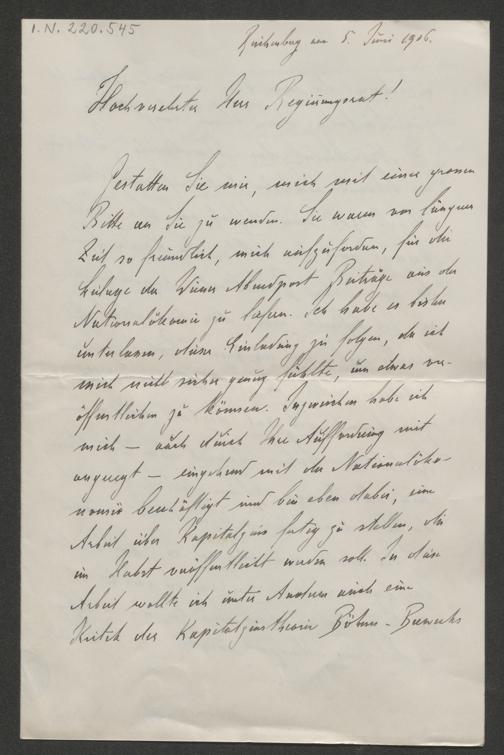 I.N. 220.545
Reichenberg am 5. Juni 1906.
Hochverehrter Herr Regierungsrat!
Gestatten Sie mir, mich mit einer grossen
Bitte an Sie zu wenden. Sie waren vor längerer
Zeit so freundlich, mich aufzufordern, für die
Beilage der Wiener Abendpost Beiträge aus der
Nationalökonomie zu liefern. Ich habe es bisher
unterlassen, dieser Einladung zu folgen, da ich
mich nicht sicher genug fühlte, um etwas ver-
öffentlichen zu können. Inzwischen habe ich
mich – auch durch Ihre Aufforderung mit
angeregt – eingehend mit der Nationalöko-
nomie beschäftigt und bin eben dabei, eine
Arbeit über Kapitalzins fertig zu stellen, die
im Herbst veröffentlicht werden soll. In dieser
Arbeit wollte ich unter Anderem auch eine
Kritik der Kapitalzinstheorie Böhm-Bawerks